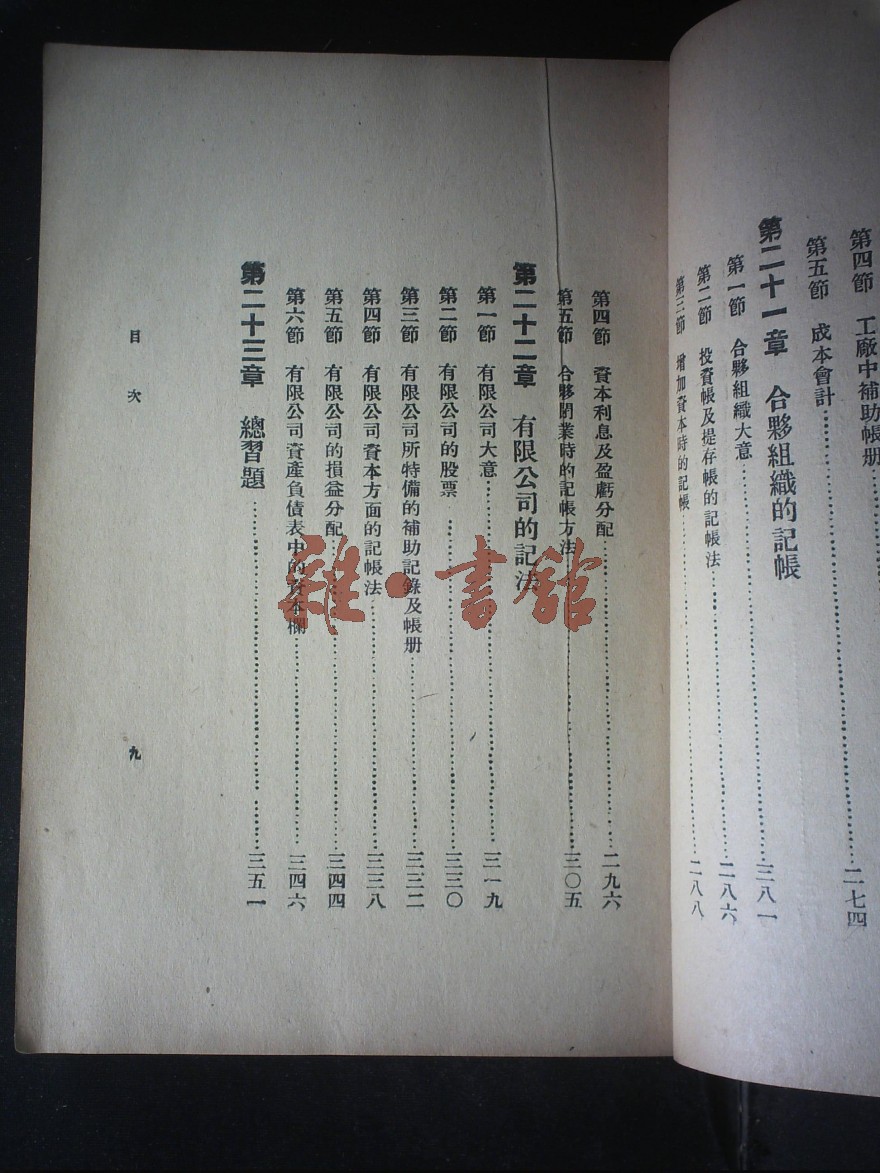 第四節 工廠中補助帳册
第五節 成本會計……二七四
第二十一章 合夥組織的記帳
第一節 合夥組織大意……三八一
第二節 投資帳及提存帳的記帳法……二八六
第三節 增加資本時的記帳……二八八
第四節 資本利息及盈虧分配……二九六
第五節 合夥閉業時的記帳方法……三〇五
第二十二章 有限公司的記法
第一節 有限公司大意……三一九
第二節 有限公司的股票……三三〇
第三節 有限公司所特備的補助記錄及帳册……三三二
第四節 有限公司資本方面的記帳法……三三八
第五節 有限公司的損益分配……三四四
第六節 有限公司資產負債表中的資本欄……三四六
第二十三章 總習題……三五一
目次
九
雜·書館